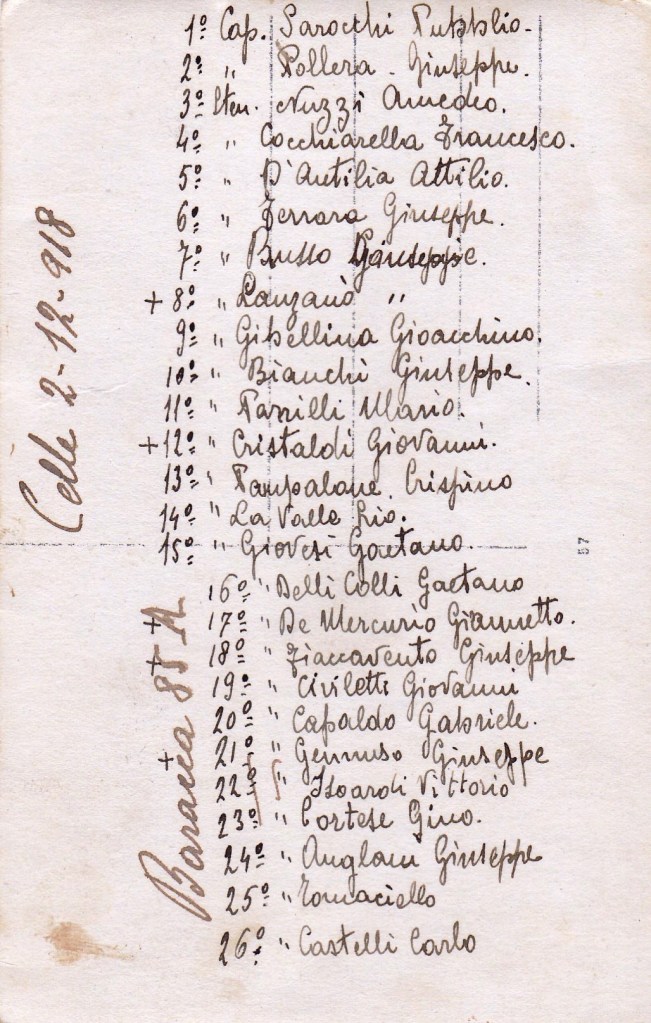 1º Cap. Sarocchi Pubblio.
2º " Pollera - Giuseppe.
3º Nuzzi Amedeo.
4º " Cocchiarella Francesco.
5º " D'Antilia Attilio.
6º " Ferrara Giuseppe.
7º " Russo Giuseppe.
+ 8º " Lanzanò "
9º " Gibellina Gioacchino.
10º " Bianchi Giuseppe.
11º " Mario.
+ 12º " Cristaldi Giovanni.
13º " Pampalone Crispino
14º " La Valle Pio.
15º " Giovesi Gaetano.
16º " Delli Colli Gaetano
+ 17º " De Mercurio Giannetto.
+ 18º " Fiaccavento Giuseppe
19º " Civiletti Giovanni
20º " Capaldo Gabriele.
+ 21º " Gennuso Giuseppe
22º " Isoardi Vittorio
23º " Cortese Gino.
24º " Anglani Giuseppe
25º " Tomaciello
26º " Castelli Carlo
Celle 2-12-918
Baracca 85 A
57